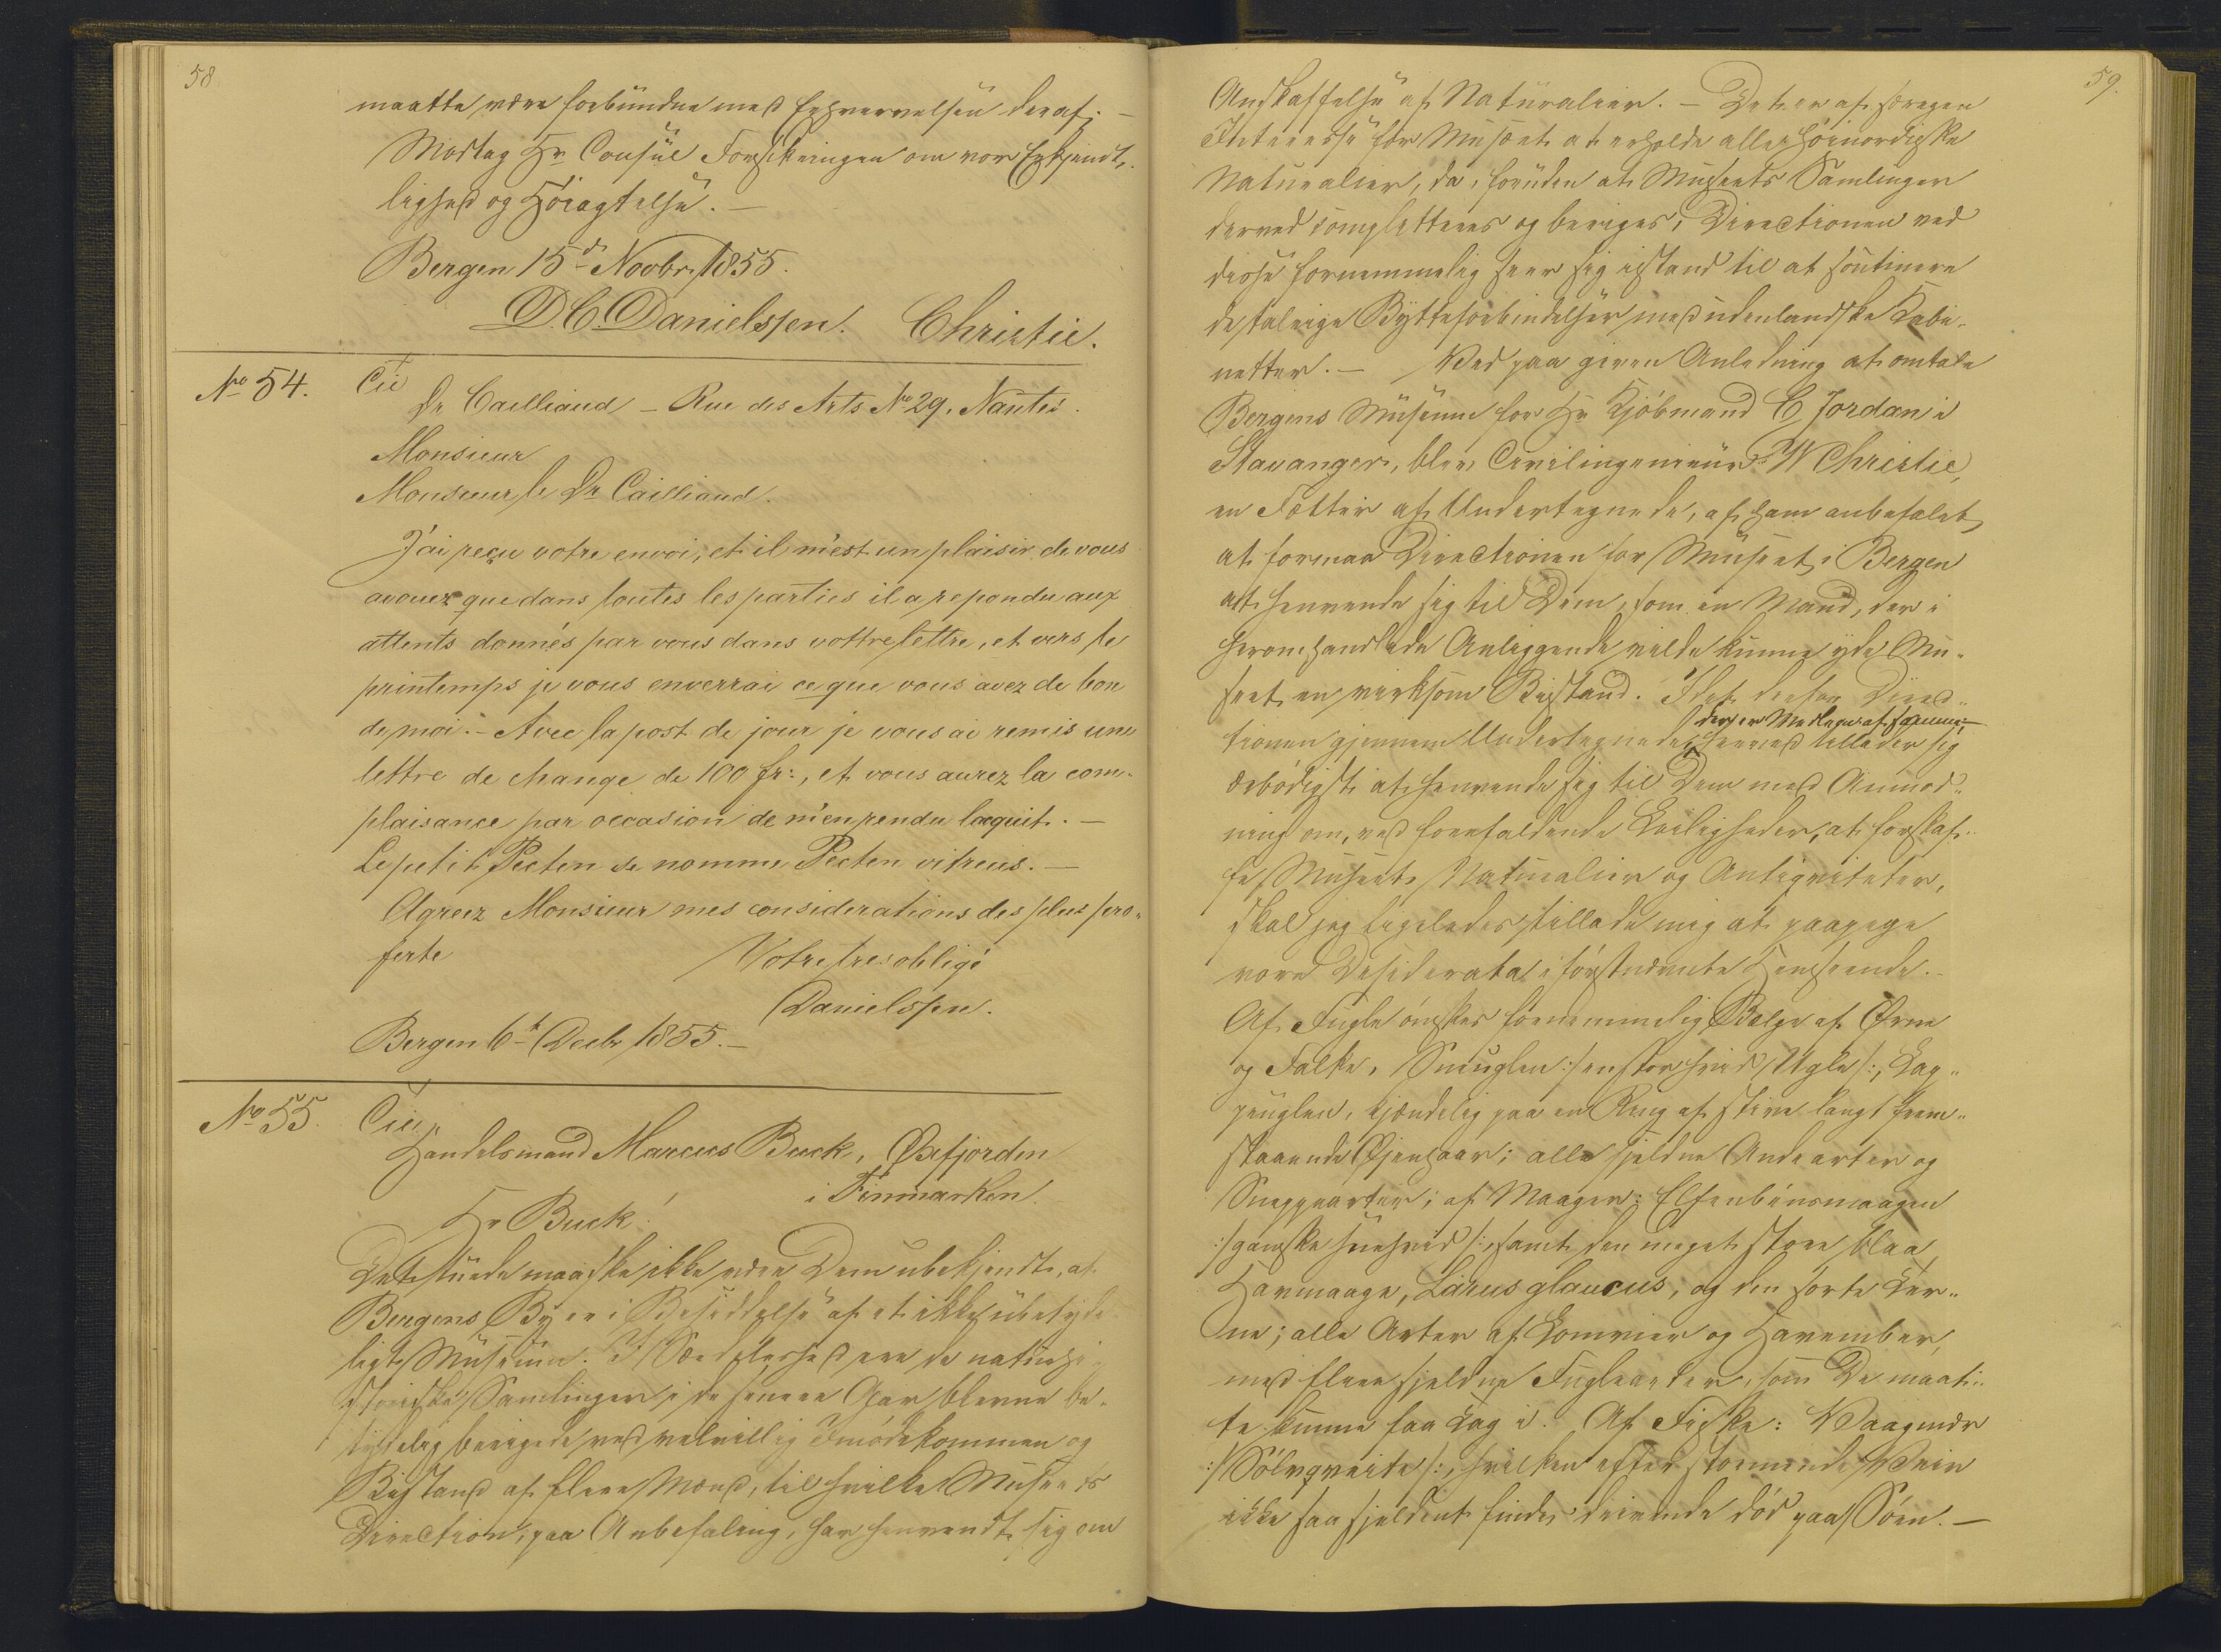 58
maatte være forbundne med Erhvervelsen deraf. —
Modtag Hr Consul Forsikringen om vor Erkjendt-
lighed og Høiagtelse. —
Bergen 15d Novbr. 1855.
D. C. Danielssen. Christie.
No 54. Til
Dr Cailliaud — Rue des Arts No 29, Nantes.
Monsieur
Monsieur le Dr Cailliaud.
J'ai reçu votre envoi, et il m'est un plaisir de vous
avouer que dans toutes les parties il a repondu aux
attents donnés par vous dans vottre lettre, et vers le
printemps je vous enverrai ce que vous avez de bon
de moi. — Avec la post de jour je vous ai remis une
lettre de change de 100 fr:, et vous aurez la com-
plaisance par occasion de m'en rendu l'acquit. —
Le petit Pecten se nomme Pecten vitreus. —
Agreez Monsieur mes considerations des plus pro-
ferte
Votre tres obligé
Danielssen.
Bergen 6t Decbr 1855. —
No 55. Til
Handelsmand Marcus Buck, Øxfjorden
i Finmarken.
Hr Buck!
Det turde maaske ikke være Dem ubekjendt, at
Bergens By er i Besiddelse af et ikke ubetyde
ligt Museum. I Særdeleshed ere de naturhi-
storiske Samlinger i de senere Aar blevne be-
tydelig berigede ved velvillig Imødekommen og
Bistand af flere Mænd, til hvilke Museets
Direction, paa Anbefaling, har henvendt sig om
59.
Anskaffelse af Naturalier. — Det er af særegen
Interesse for Museet at erholde alle høinordiske
Naturalier, da, foruden at Museets Samlinger
derved completteres og beriges, Directionen ved
disse fornemmelig seer sig istand til at continuere
de talrige Bytteforbindelser med udenlandske Kabi-
netter. — Ved paa given Anledning at omtale
Bergens Museum for Hr Kjøbmand C Jordan i
Stavanger, blev Civilingenieur W Christie,
en Fætter af Undertegnede, af ham anbefalet,
at formaa Directionen for Museet i Bergen
at henvende sig til Dem, som en Mand, der i
heromhandlede Anliggende vilde kunne yde Mu-
seet en virksom Bistand. Idet derfor Direc-
der er Medlem af samme,
tionen gjennem Undertegnede, herved tillader sig
ærbødigst at henvende sig til Dem med Anmod-
ning om, ved forefaldende Leiligheder, at forskaf-
fe Museet Naturalier og Antiqviteter,
skal jeg ligeledes tillade mig at paapege
vore Desiderata i førstnævnte Henseende. —
Af Fugle ønskes fornemmelig Belge af Ørne
og Falke, Sneuglen :/ en stor hvid Ugle /:, Lap-
peuglen, kjendelig paa en Ring af stive langt frem-
staaende Øjenhaar; alle sjeldne Andearter og
Sneppearter; af Maager: Elfenbensmaagen
:/ ganske snehvid /:, samt den meget store blaa
Havmaage, Larus glaucus, og den sorte Ter-
ne; alle Arter af Lomvier og Havember,
med flere sjeldne Fuglearter, som De maat-
te kunne faa Tag i. Af Fiske: Vaagmær
:/ Sølvqveite /:, hvilken efter stormende Veir
ikke saa sjeldent findes drivende død paa Søen. —